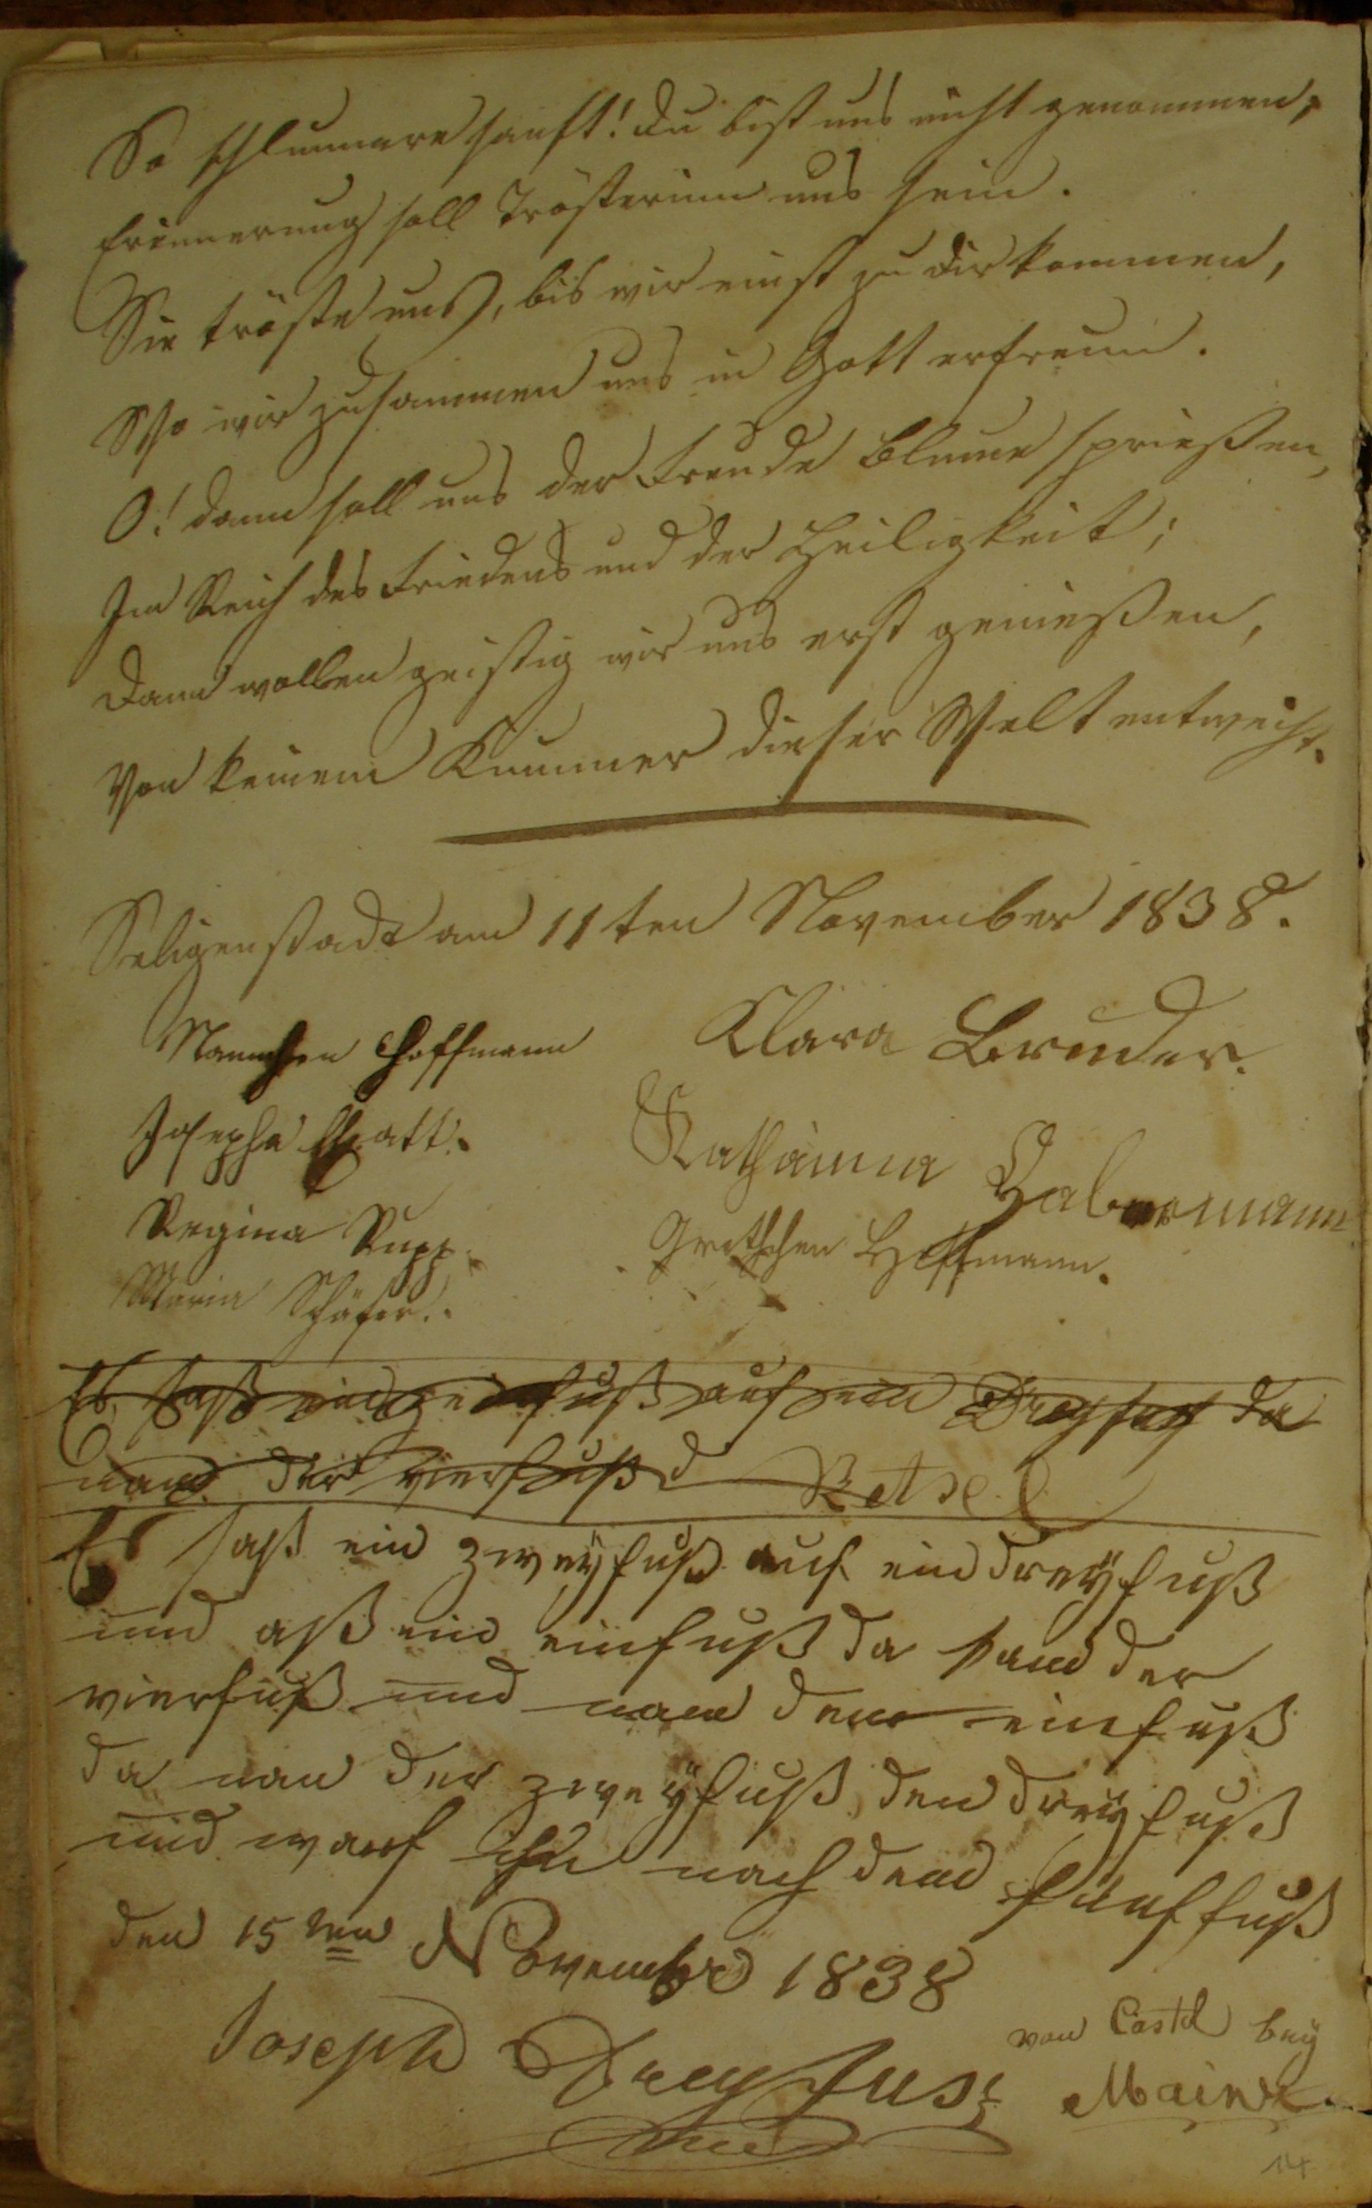 So schlummere sanft! du bist uns nicht genommen,
Erinnerung soll Trösterinn uns sein.
Sie tröste uns, bis wir einst zu dir kommen,
Wo wir zusammen uns in Gott erfreuin.
O! dann soll uns der Freude Blume sprießen,
Im Reich des Friedens und der Heiligkeit;
Dann wollen geistig wir uns erst genießen,
Von keinem Kummer dieser Welt entweiht.
Seligenstadt am 11ten November 1838.
Nannchen Hoffmann
Klara Bruder.
Josepha
Katharina Habermann
Regina Rupp.
Gretchen Hoffmann.
Maria Schäfer.
Es saß ein zweifuß auf ein Dreyfuß da
nam der vierfuß
Retsel
Es saß ein zweyfuß auf ein dreyfuß
und aß ein einfuß da kam der
vierfuß und nam den einfuß
da nam der zweyfuß den dreyfuß
und warf ihn nach dem fünffuß
den 15ten November 1838
Joseph Dreyfuss
von Castel bey
Mainz.
14